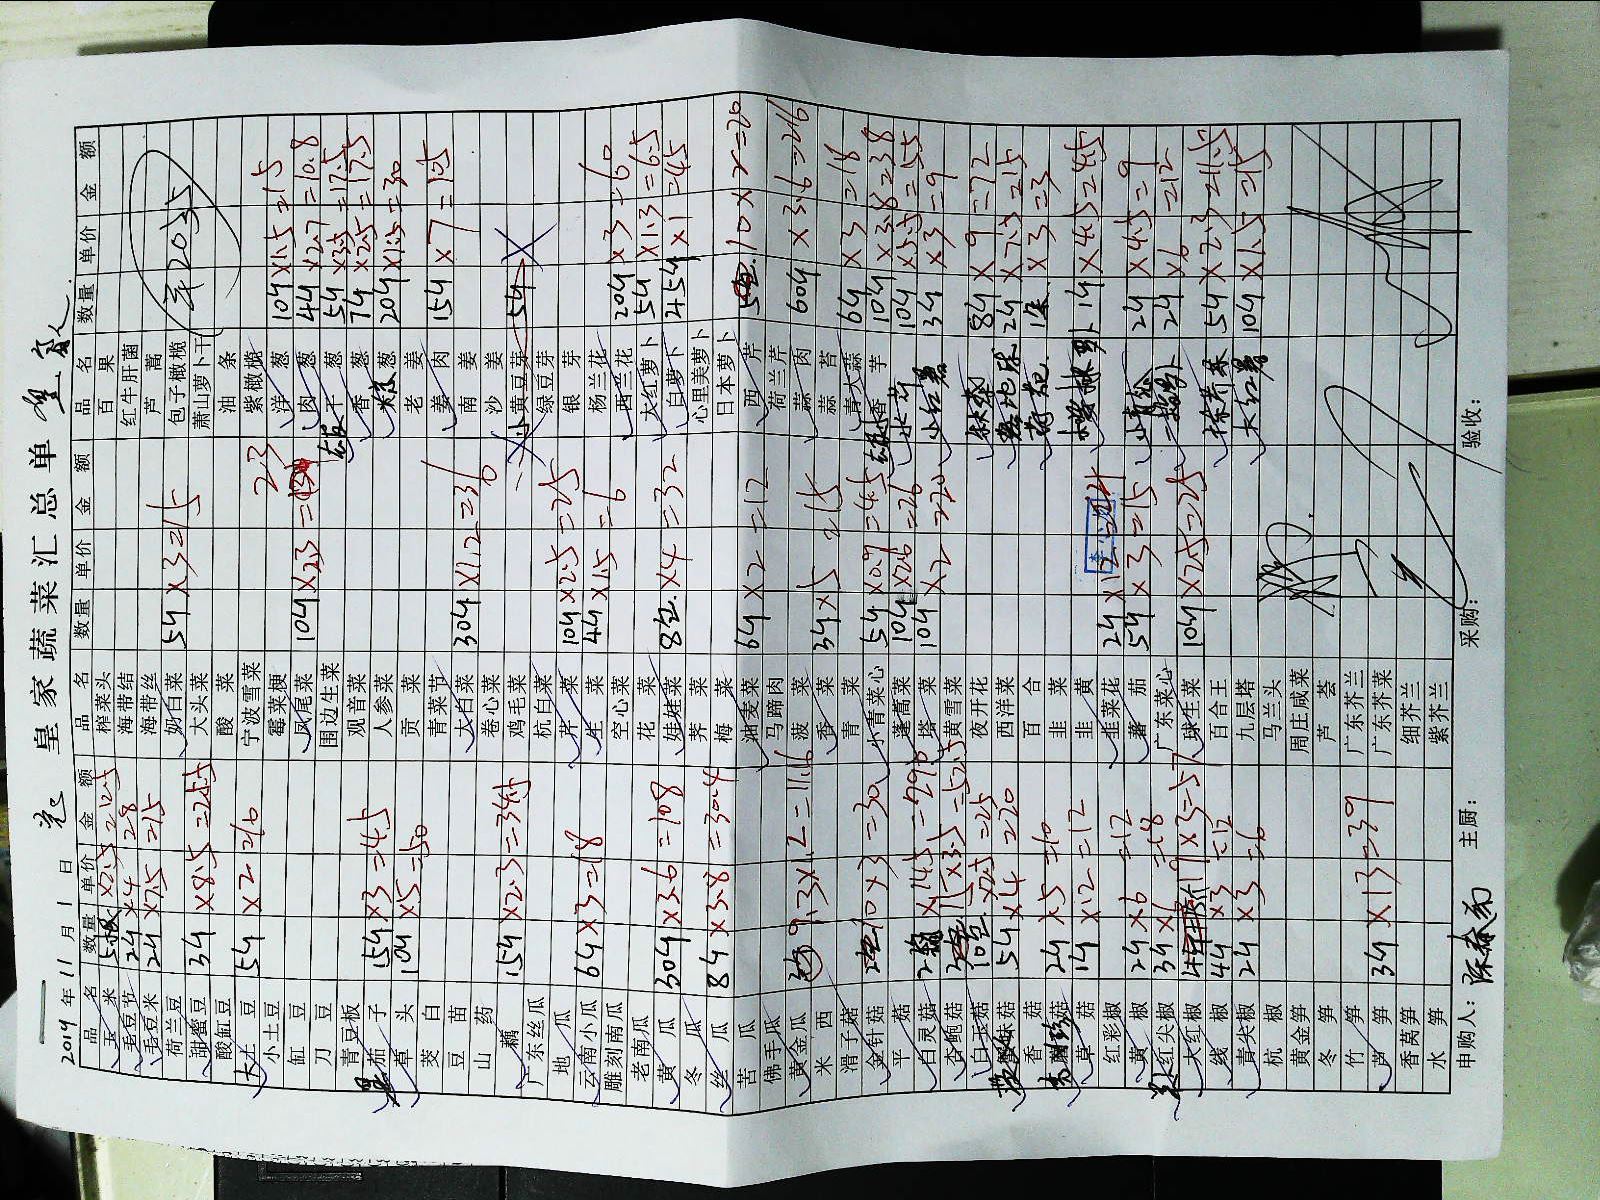 皇家蔬菜汇总单
2014年11月1日
品名 数量 单价 金额 品名 数量 单价 金额 品名 数量 单价 金额
玉米 5根 ×2.5=12.5 榨菜头 百果
毛豆节 2斤 ×4=8 海带结 红牛肝菌
毛豆米 2斤 ×7.5=15 海带丝 芦蒿
荷兰豆 奶白菜 5斤×3=15 包子橄榄
甜蜜豆 3斤 ×8.5=25.5 大头菜 萧山萝卜干
酸缸豆 酸菜 油条
大土豆 5斤 ×2=10 宁波雪菜 紫橄榄
小土豆 霉菜梗 23 洋葱 10斤×1.5=15
缸豆 凤尾菜 10斤×2.3= 肉葱 4斤×2.7=10.8
刀豆 围边生菜 干葱 5斤×3.5=17.5
青豆板 观音菜 香葱 7斤×2.5=17.5
茄子 15斤×3=45 人参菜 葱 20斤×1.5=30
草头 10斤×5=50 贡菜 老姜
茭白 青菜节 肉姜 15斤×7=105
豆苗 大白菜 30斤×1.2=36 南姜
山药 卷心菜 沙姜
藕 15斤×2.3=34.5 鸡毛菜 小黄豆芽 5斤
广东丝瓜 杭白菜 绿豆芽
地瓜 芹菜 10斤×2.5=25 银芽
云南小瓜 6斤×3=18 生菜 4斤×1.5=6 杨兰花
雕刻南瓜 空心菜 西兰花 20斤×3=60
老南瓜 花菜 大红萝卜 5斤×1.3=6.5
黄瓜 30斤×3.6=108 娃娃菜 8包×4=32 白萝卜 45斤×1=45
冬瓜 荠菜 心里美萝卜
丝瓜 8斤×3.8=30.4 梅菜 日本萝卜
苦瓜 湘麦菜 6斤×2=12 西芹 10×2=20
佛手瓜 马蹄肉 荷兰芹
黄金瓜 9.3×1.2=11.16 菠菜 蒜肉 60斤×3.6=216
米西 香菜 3斤×5=15 蒜苔
滑子菇 青菜 青大蒜 6斤×3=18
金针菇 10×3=30 小青菜心 5斤×0.9=4.5 香芋 10斤×3.8=38
平菇 蓬蒿菜 10斤×2.6=26 10斤×5.5=55
白灵菇 ×14.5=29 塔菜 10斤×2=20 小红薯 3斤×3=9
杏鲍菇 15×3.5=52.5 黄雪菜
白玉菇 10包×2.5=25 夜开花 8斤×9=72
菇 5斤×4=20 西洋菜 2斤×7.5=15
香菇 2斤×5=10 百合 ×3=3
草菇 1斤×12=12 韭菜
红彩椒 韭黄 1斤×4.5=4.5
黄椒 2斤×6=12 韭菜花 2斤×12=24
红尖椒 3斤×6=18 蕃茄 5斤×3=15 2斤×4.5=9
大红椒 19×3=57 广东菜心 2斤×6=12
线椒 4斤×3=12 球生菜 10斤×2.5=25 5斤×2.3=11.5
青尖椒 2斤×3=6 百合王 大红薯 10斤×1.5=15
杭椒 九层塔
黄金笋 马兰头
冬笋 周庄咸菜
竹笋 芦荟
芦笋 3斤×13=39 广东芥兰
香莴笋 广东芥菜
水笋 细芥兰
紫芥兰
申购人： 主厨： 采购： 验收：